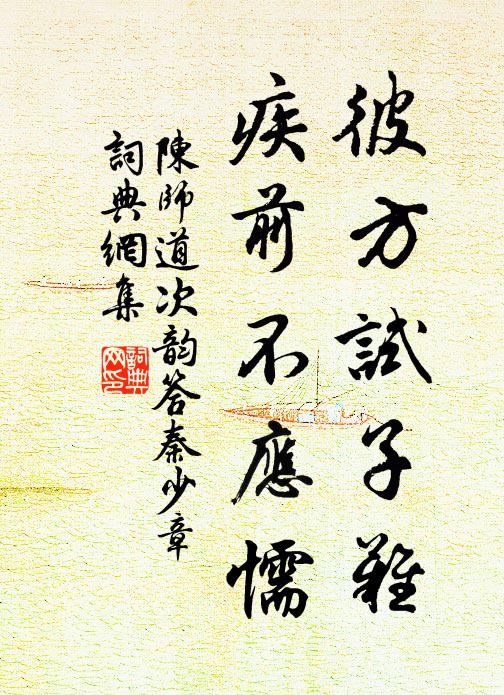 彼方試子難
疾前不應懦
陳師道次韵答秦少章
詞典網集
詞典
网印